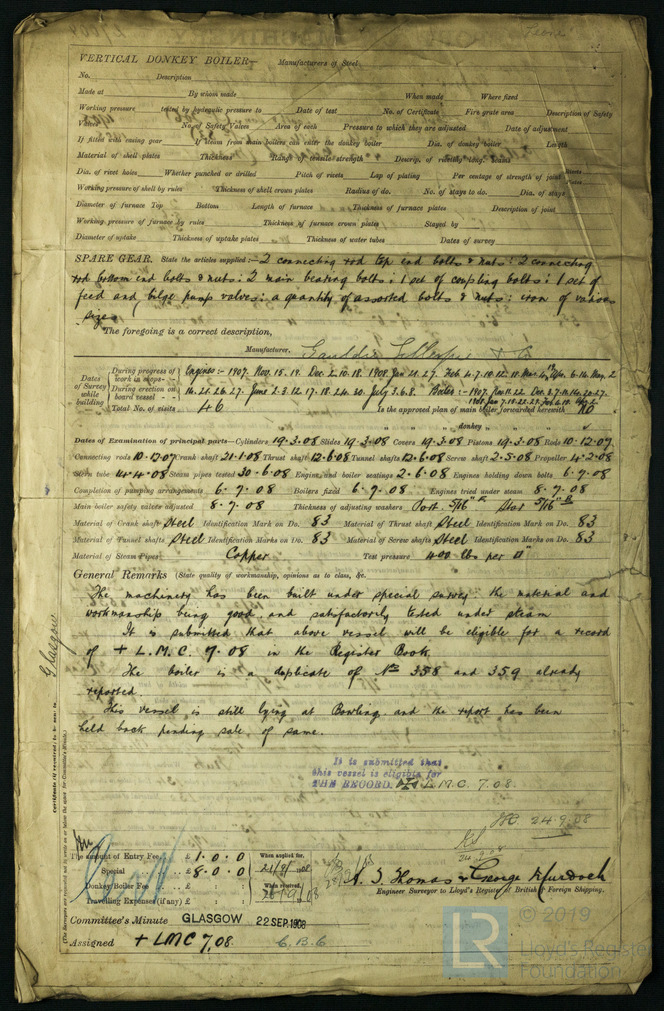 VERTICAL DONKEY BOILER— Manufacturers of Steel
No. Description
Made at By whom made When made Where fixed
Working pressure tested by hydraulic pressure to Date of test No. of Certificate Fire grate area Description of Safety
Valves No. of Safety Valves Area of each Pressure to which they are adjusted Date of adjustment
If fitted with easing gear If steam from main boilers can enter the donkey boiler Dia. of donkey boiler Length
Material of shell plates Thickness Range of tensile strength Descrip. of riveting long. seams
Dia. of rivet holes Whether punched or drilled Pitch of rivets Lap of plating Per centage of strength of joint Rivets Plates
Working pressure of shell by rules Thickness of shell crown plates Radius of do. No. of stays to do. Dia. of stays
Diameter of furnace Top Bottom Length of furnace Thickness of furnace plates Description of joint
Working pressure of furnace by rules Thickness of furnace crown plates Stayed by
Diameter of uptake Thickness of uptake plates Thickness of water tubes Dates of survey
SPARE GEAR. State the articles supplied:— 2 connecting rod top end bolts & nuts: 2 connecting
rod bottom end bolts & nuts: 2 main bearing bolts: 1 set of coupling bolts: 1 set of
feed and bilge pump valves: a quantity of assorted bolts & nuts: iron of various
sizes
The foregoing is a correct description,
Manufacturer. Gauldie Gillespie & Co
Dates of Survey while building
During progress of work in shops - - Engines:- 1907. Nov. 15. 19. Dec. 2. 10. 18. 1908 Jan 21. 27. Feb 4. 7. 10. 12. 18. Mar 4. Apr. 6. 14. May. 2
During erection on board vessel - - - 14. 21. 26. 27. June 2. 3. 12. 17. 18. 24. 30. July 3. 6. 8. Boiler:- 1907. Nov. 22. Dec. 3. 7. 10. 14. 20. 27.
Total No. of visits 46 Is the approved plan of main boiler forwarded herewith No
" " " donkey " " "
Dates of Examination of principal parts—Cylinders 19.3.08 Slides 19.3.08 Covers 19.3.08 Pistons 19.3.08 Rods 10.12.07
Connecting rods 10.12.07 Crank shaft 21.1.08 Thrust shaft 12.6.08 Tunnel shafts 12.6.08 Screw shaft 2.5.08 Propeller 14.2.08
Stern tube 14.4.08 Steam pipes tested 30.6.08 Engine and boiler seatings 2.6.08 Engines holding down bolts 6.7.08
Completion of pumping arrangements 6.7.08 Boilers fixed 6.7.08 Engines tried under steam 8.7.08
Main boiler safety valves adjusted 8.7.08 Thickness of adjusting washers Port 5/16" Star 5/16"
Material of Crank shaft Steel Identification Mark on Do. 83 Material of Thrust shaft Steel Identification Mark on Do. 83
Material of Tunnel shafts Steel Identification Marks on Do. 83 Material of Screw shafts Steel Identification Marks on Do. 83
Material of Steam Pipes Copper Test pressure 400 lbs per □"
General Remarks (State quality of workmanship, opinions as to class, &c.
The machinery has been built under special survey the material and
workmanship being good. and satisfactorily tested under steam
It is submitted that above vessel will be eligible for a record
of + L.M.C. 7.08 in the Register Book
The boiler is a duplicate of Nos 358 and 359 already
reported.
This vessel is still lying at Bowling and the report has been
held back pending sale of same.
It is submitted that
this vessel is eligible for
THE RECORD. + L.M.C. 7.08.
24.9.08
24.9.08
Glasgow
Certificate (if required) to be sent to
(The Surveyors are requested not to write on or below the space for Committee's Minute.)
The amount of Entry Fee . . £ 1 . 0 . 0 When applied for,
Special . . £ 8 . 0 . 0 21/9/1908
Donkey Boiler Fee . . £ When received,
Travelling Expenses (if any) £
A. J. Thomas & George Murdoch
Engineer Surveyor to Lloyd's Register of British & Foreign Shipping.
Committee's Minute GLASGOW 22 SEP. 1908
Assigned + LMC 7.08
LR
© 2019
Lloyd's Register
Foundation